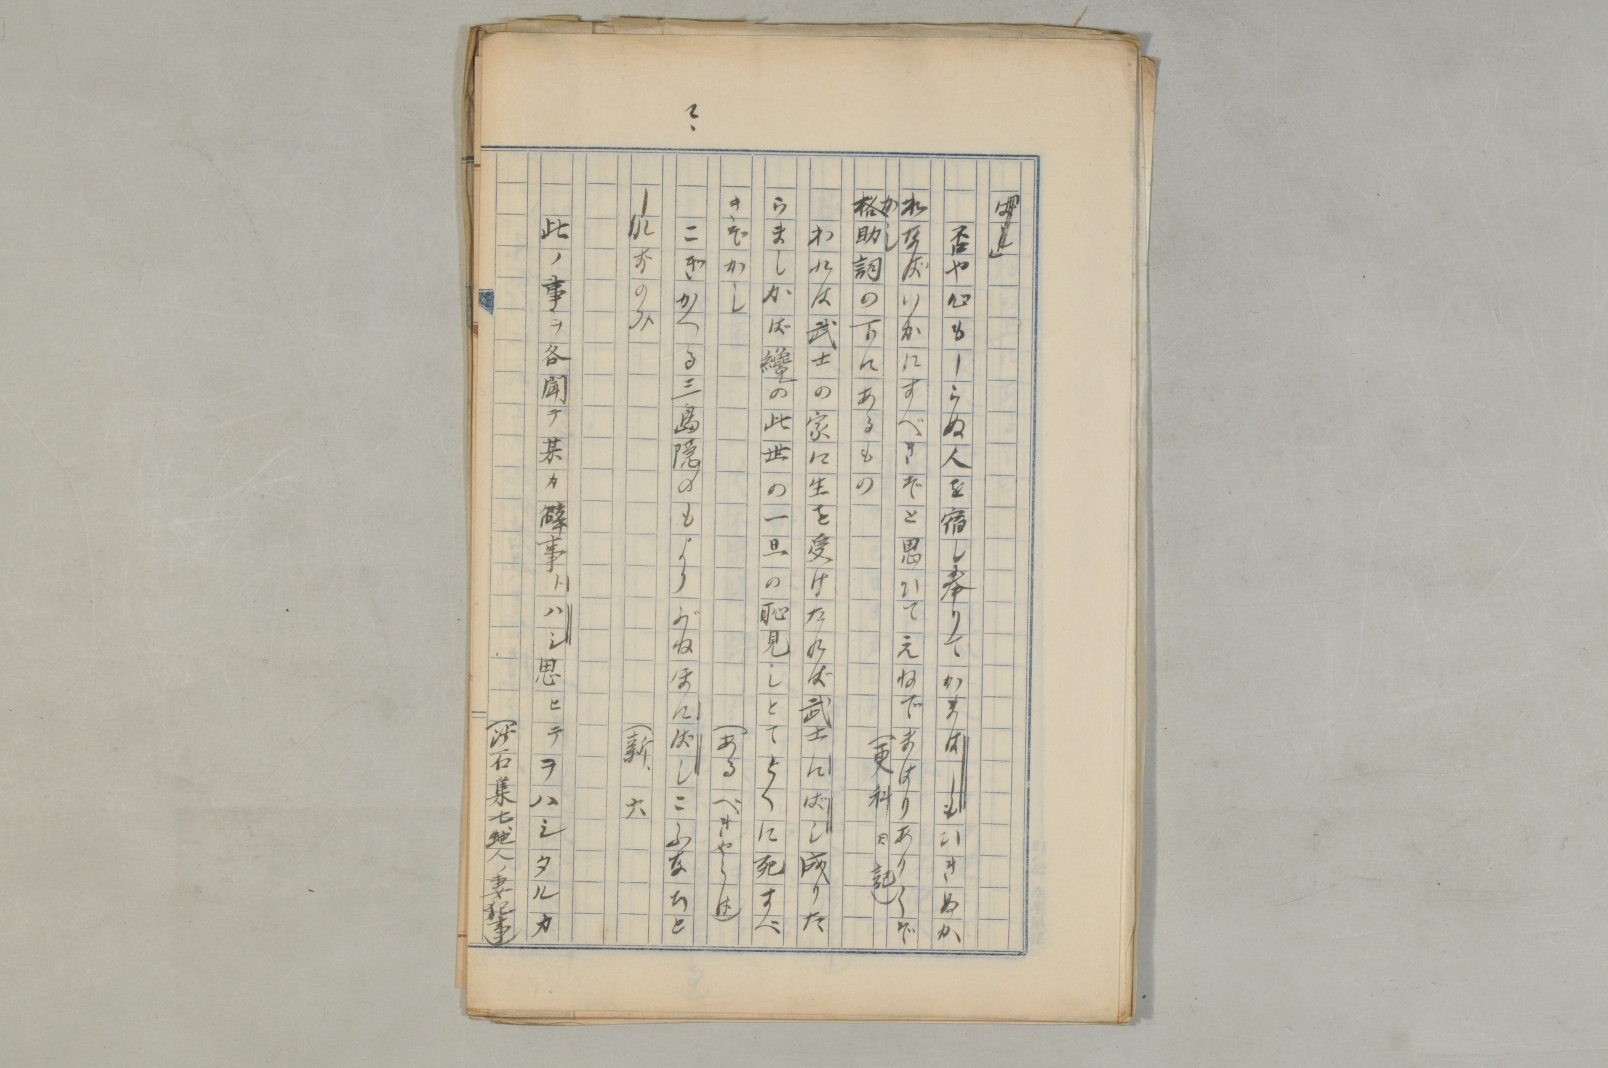 ばし」
否や心もしらぬ人を宿し奉りてかまはしもひきぬか
れなばいかにすべきぞと思ひてえねでまはりありくぞ
かし
(更科日記)
格助詞の下にあるもの
われは武士の家に生を受けたれば武士にばし成りた
らましかば纔の此世の一旦の恥見しとてとくに死すべ
きぞかし
(あるべきやうは)
こぎかへる三島隠のもよりぶねほにばしこふなちと
しれずのみ
(新、六
此ノ事ヲ各聞テ某カ僻事トハシ思ヒテヲハシタルカ
(沙石集七、他人ノ妻犯事)